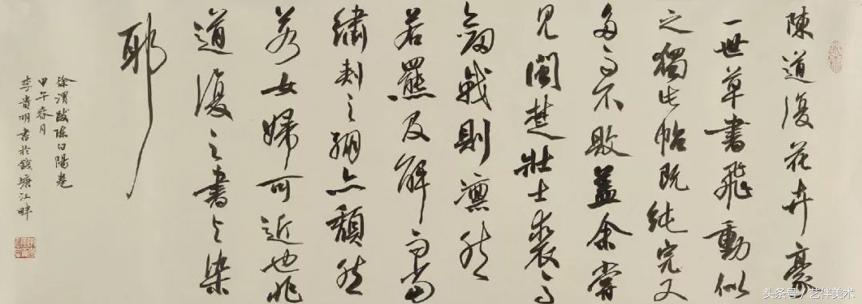 陳道復花卉豪
一世草書飛動似
之獨此帖既純完又
多而不敗蓋余嘗
見閩楚壯士裘馬
劍戟則凜然
若羆及解而當
繡刺之繃亦頹然
若女婦可近也非
道復之書與染
耶
徐渭跋陳白陽卷
甲午春月
李貴明書於錢塘江畔
头条号/艺伴美术